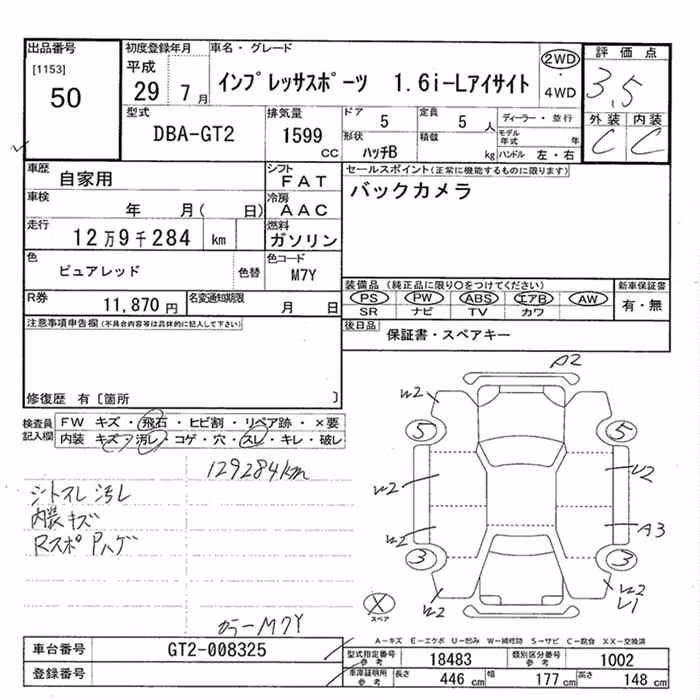 出品番号 初度登録年月 車名・グレード 評価点
[1153] 50
平成 29 7月
インプレッサスポーツ 1.6i-Lアイサイト
2WD・4WD
3.5
外装 内装
C C
型式 排気量 ドア 5 定員 5人 ディーラー・並行
DBA-GT2 1599cc 形状 ハッチB 積載 kg モデル年式 年
ハンドル 左・右
車歴 自家用 シフト FAT セールスポイント(正常に機能するものに限ります)
車検 年 月( 日) 冷房 AAC バックカメラ
走行 12万9千284 km 燃料 ガソリン
色 ピュアレッド 色替 色コード M7Y
装備品(純正品に限り○をつけてください) 新車保証書
PS PW ABS エアB AW 有・無
SR ナビ TV カワ
R券 11,870円 名変通知期限 月 日
後日品 保証書・スペアキー
注意事項申告欄(不具合内容等は具体的に記入して下さい)
修復歴 有〔箇所 〕
検査員記入欄 FW キズ・飛石・ヒビ割・リペア跡・×要
内装 キズ・汚レ・コゲ・穴・スレ・キレ・破レ
129284km
シートスレ 汚レ
内装キズ
Rスポ Pハゲ
カラーM7Y
A2
W2
5 5
W2 U2
W2 A3
3 3
W2 W2
U1
X
スペア
A-キズ E-エクボ U-凹み W-補修跡 S-サビ C-腐食 XX-交換済
車台番号 GT2-008325 型式指定番号 参考 18483 類別区分番号 参考 1002
登録番号 車庫証明所 参考 長さ 446cm 幅 177cm 高さ 148cm